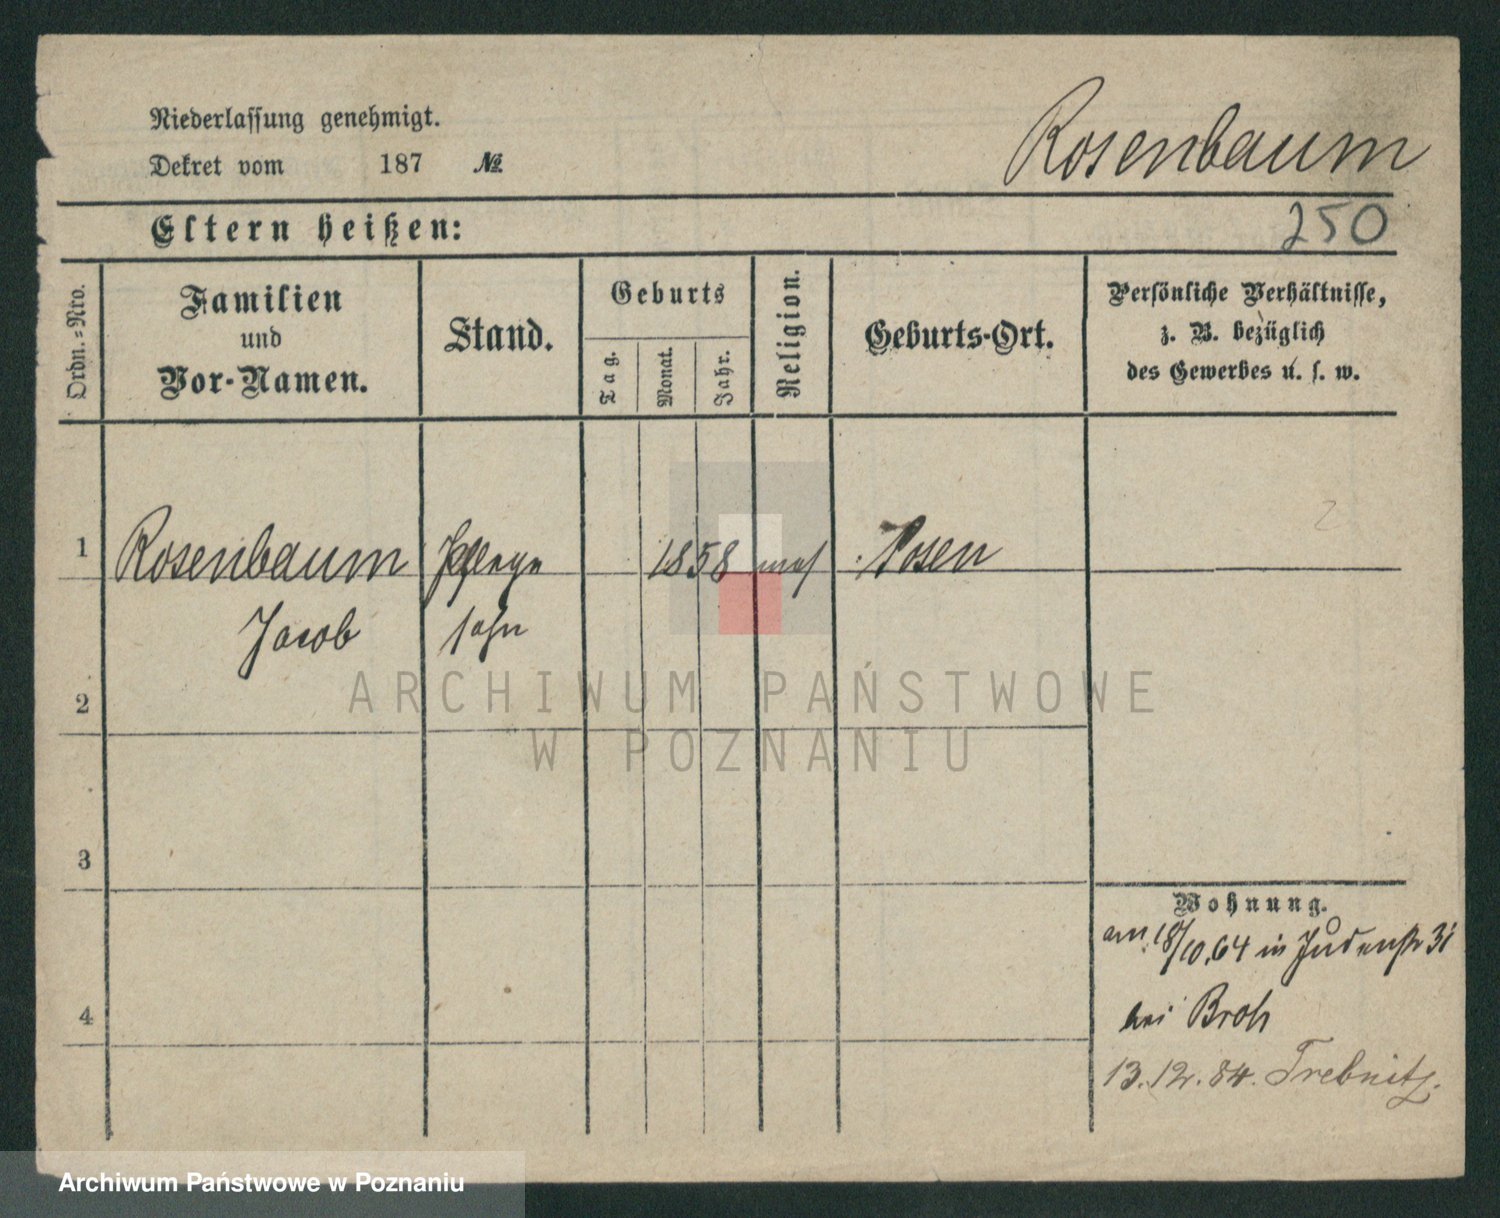 Niederlassung genehmigt.
Dekret vom 187 №
Rosenbaum
Eltern heißen:
250
Ordn.-Nro.
Familien
und
Vor-Namen.
Stand.
Geburts
Tag.
Monat.
Jahr.
Religion.
Geburts-Ort.
Persönliche Verhältnisse,
z. B. bezüglich
des Gewerbes u. s. w.
1 Rosenbaum Pflege 1858 mos Posen
Jacob sohn
2
3
4
Wohnung.
am 18/10.64 in Judenstr 31
bei Broh
13.12.84. Trebnitz.
ARCHIWUM PAŃSTWOWE
W POZNANIU
Archiwum Państwowe w Poznaniu